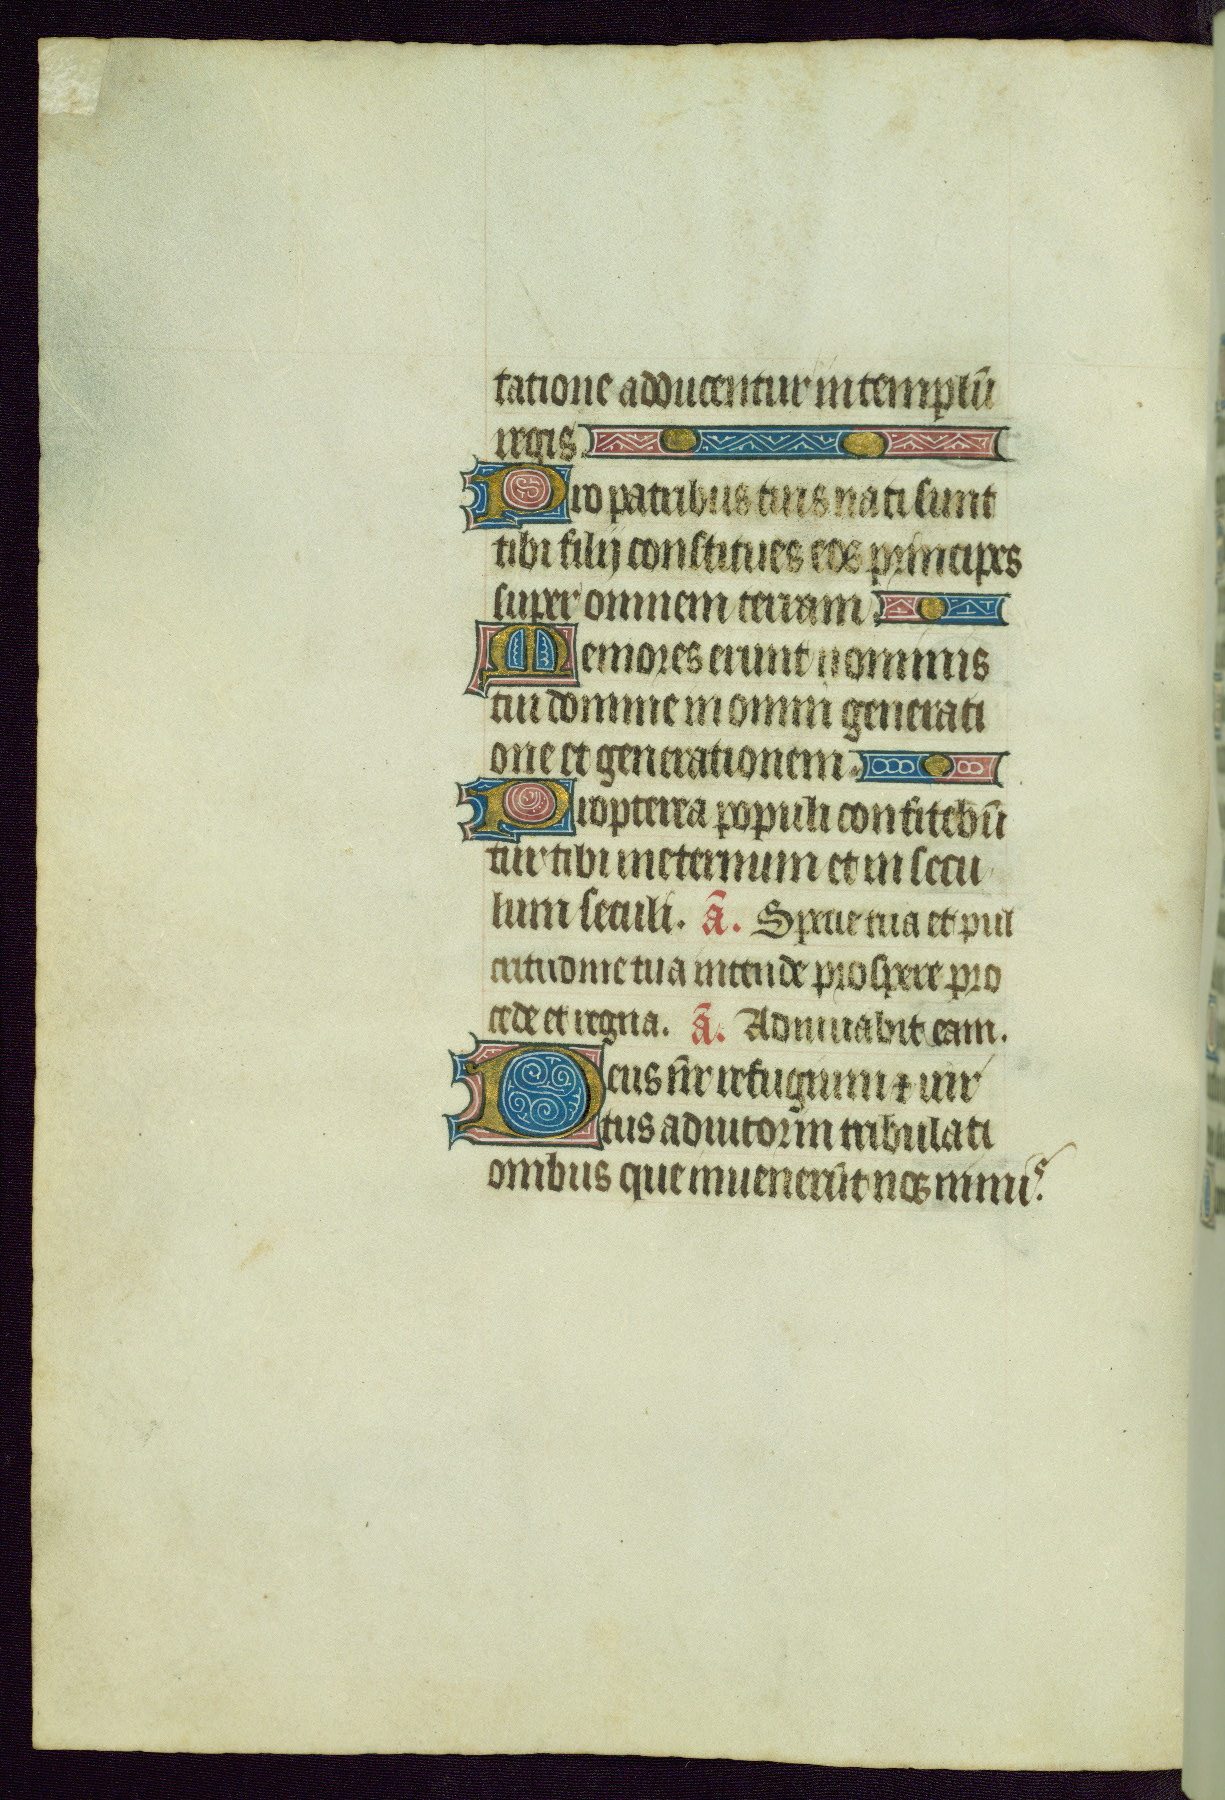 tatione adducentur in templū
regis.
Pro patribus tuis nati sunt
tibi filij constitues eos principes
super omnem terram.
Memores erunt nominis
tui domine in omni generati
one et generationem.
Propterea populi confitebū
tur tibi in eternum et in secu
lum seculi. ā. Specie tua et pul
critudine tua intende prospere pro
cede et regna. ā. Adiuuabit eam.
Deus nr̄ refugium ⁊ uir
tus adiutor in tribulati
onibus que inuenerūt nos nimis.